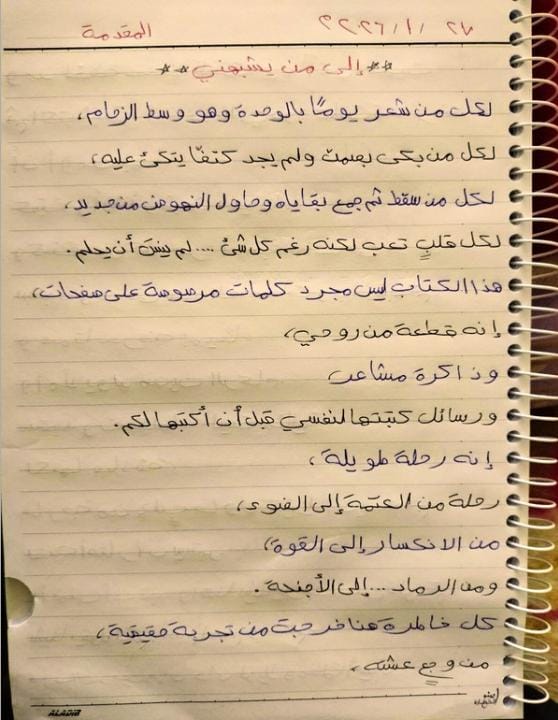 المقدمة ٢٠٢٦/١/٢٧
**إلى من يشبهني**
لكل من شعر يومًا بالوحدة وهو وسط الزحام،
لكل من بكى بصمت ولم يجد كتفًا يتكئ عليه،
لكل من سقط ثم جمع بقاياه وحاول النهوض من جديد،
لكل قلبٍ تعب لكنه رغم كل شئ .... لم ينسَ أن يحلم.
هذا الكتاب ليس مجرد كلمات مرصوصة على صفحات،
إنه قطعة من روحي،
وذاكرة مشاعب
ورسائل كتبتها لنفسي قبل أن أكتبها لكم.
إنه رحلة طويلة،
رحلة من العتمة إلى الضوء،
من الانكسار إلى القوة،
ومن الرماد ...إلى الأجنحة.
كل خاطرة هنا خرجت من تجربة حقيقية،
من وجعٍ عشته.
ALADIN